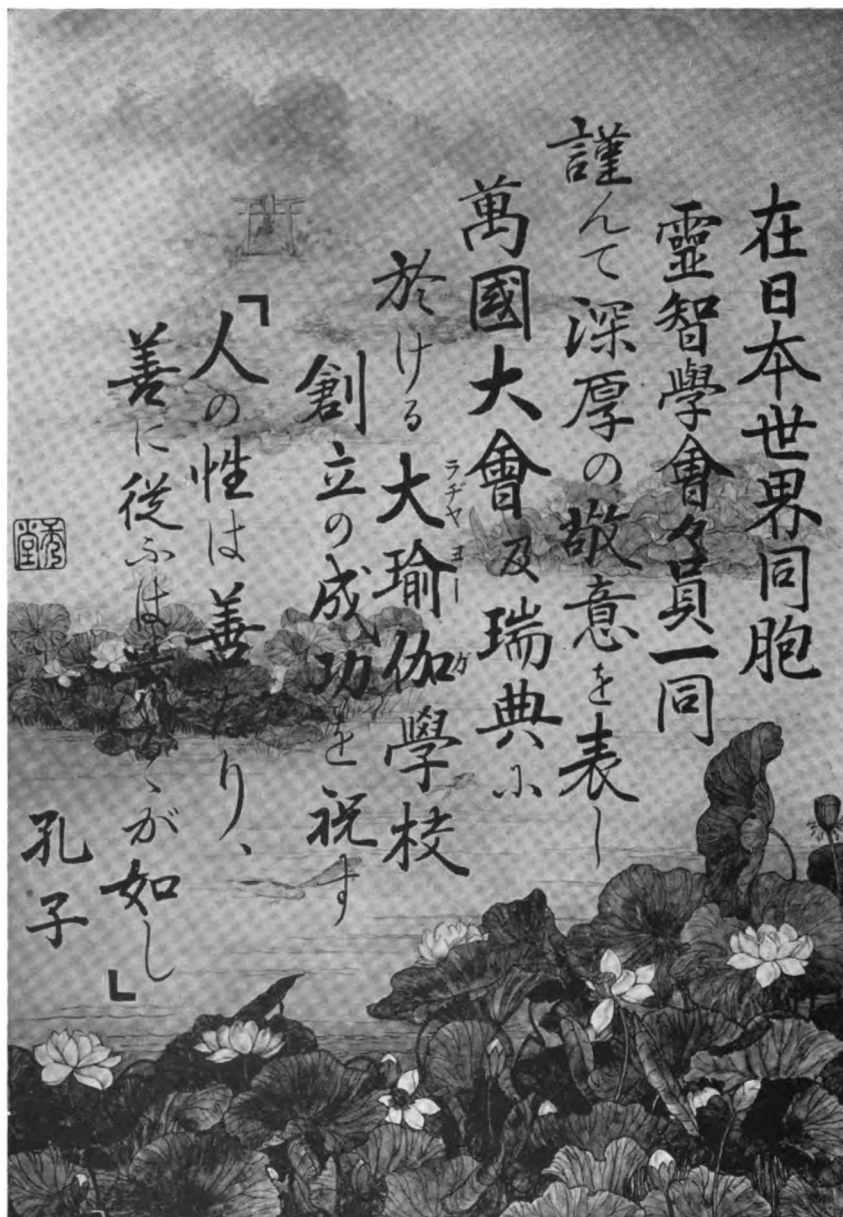 在日本世界同胞
靈智學會々員一同
謹んて深厚の敬意を表し
萬國大會及瑞典に
於ける大瑜伽學校
ラヂヤ ヨーガ
創立の成功を祝す
「人の性は善なり、
善に従ふは が如し」
孔子
秀堂